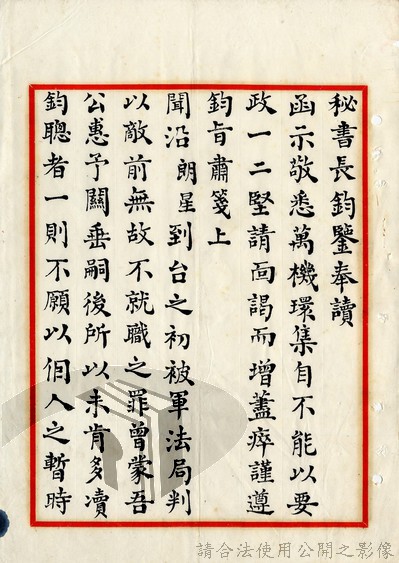 秘書長鈞鑒奉讀
函示敬悉萬機環集自不能以要
政一二堅請面謁而增藎瘁謹遵
鈞旨肅箋上
聞沿朗星到台之初被軍法局判
以敵前無故不就職之罪曾蒙吾
公惠予關垂嗣後所以未肯多瀆
鈞聰者一則不願以個人之暫時
請合法使用公開之影像